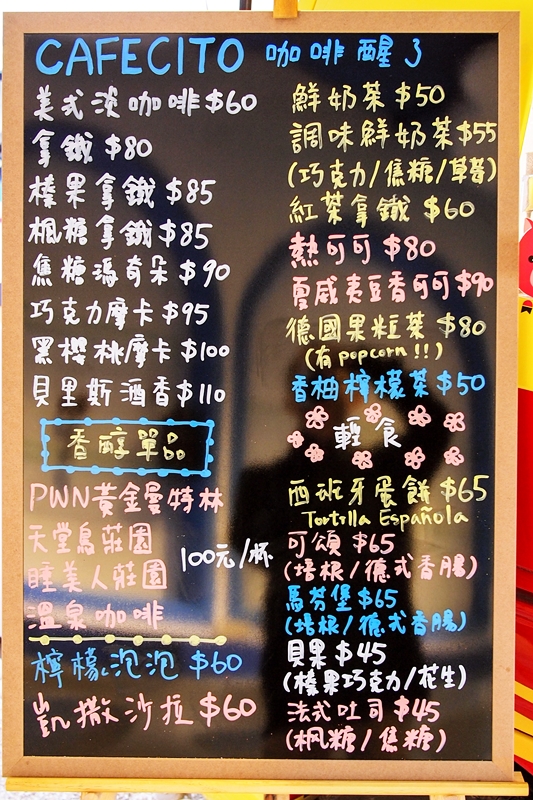 CAFECITO 咖啡醒了
美式淡咖啡 $60
拿鐵 $80
榛果拿鐵 $85
楓糖拿鐵 $85
焦糖瑪奇朵 $90
巧克力摩卡 $95
黑櫻桃摩卡 $100
貝里斯酒香 $110
香醇單品
PWN黃金曼特林
天堂鳥莊園
睡美人莊園
溫泉咖啡
100元/杯
檸檬泡泡 $60
凱撒沙拉 $60
鮮奶茶 $50
調味鮮奶茶 $55
(巧克力/焦糖/草莓)
紅茶拿鐵 $60
熱可可 $80
夏威夷豆香可可 $90
德國果粒茶 $80
(有 popcorn !!)
香柚檸檬茶 $50
輕食
西班牙蛋餅 $65
Tortilla Española
可頌 $65
(培根/德式香腸)
馬芬堡 $65
(培根/德式香腸)
貝果 $45
(榛果巧克力/花生)
法式吐司 $45
(楓糖/焦糖)